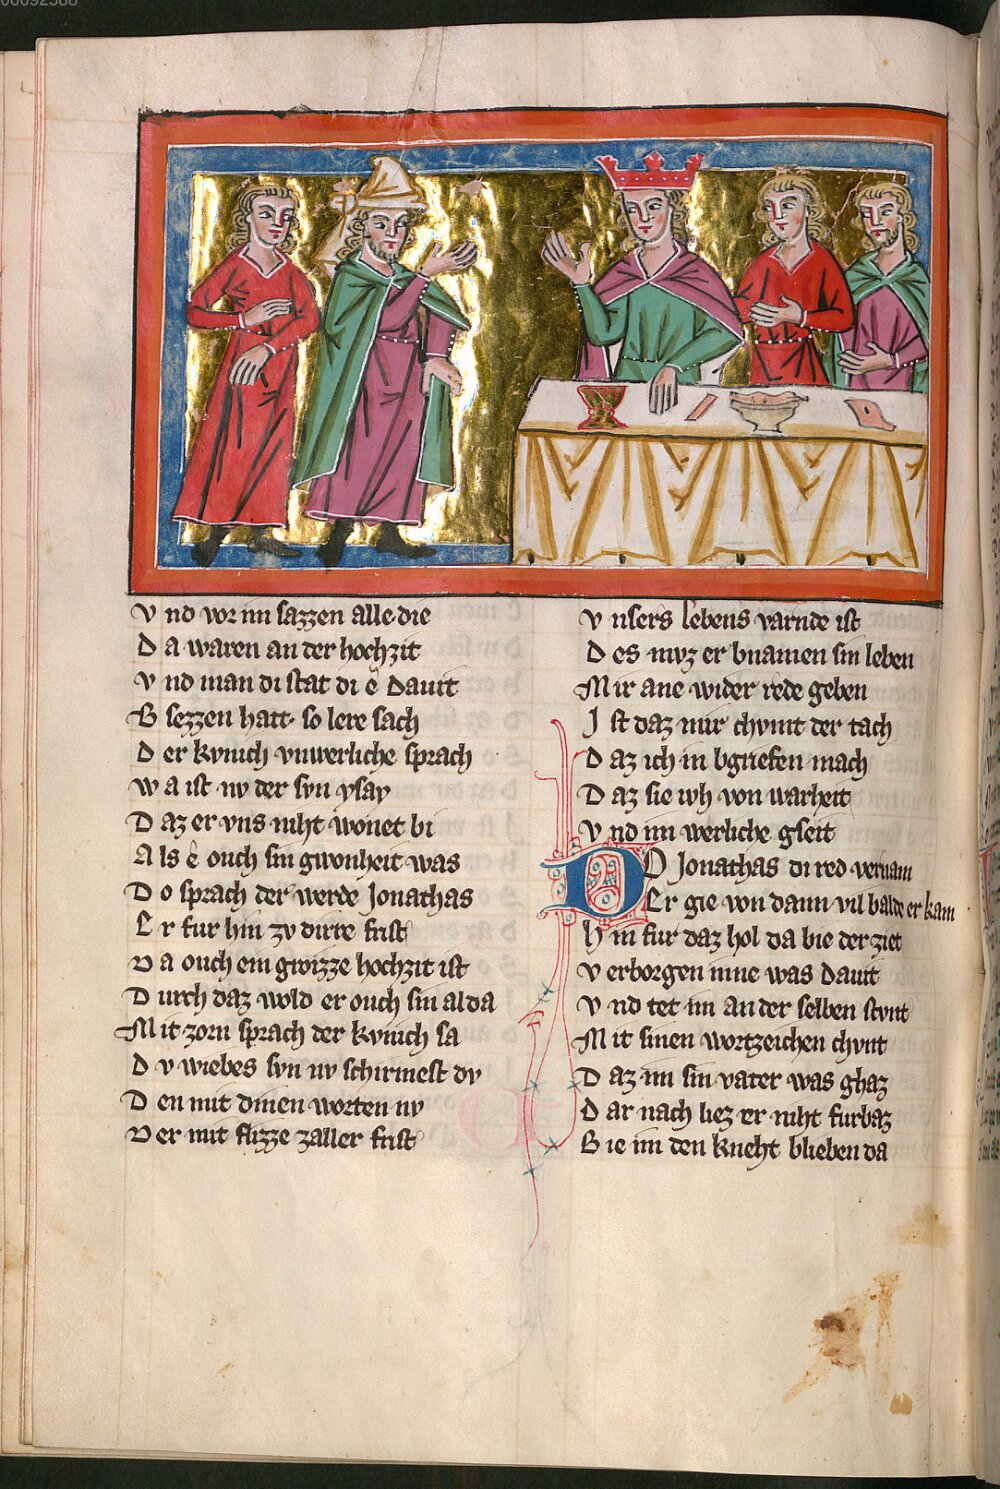 00092588
V nd vor im sazzen alle die
D a waren an der hochzit
V nd man di stat di ê Dauit
B sezzen hatt· so lere sach
D er kvnich vnwerliche sprach
W a ist nv der svn ysay
D az er vns niht wonet bi
A ls ê ouch sin gwonheit was
D o sprach der werde Jonathas
E r fur hin zv dirre frist
D a ouch ein gwizze hochzit ist
D urch daz wold er ouch sin al da
M it zorn sprach der kvnich sa
D v wiebes svn nv schirmest dv
D en mit dinen worten nv
D er mit flizze zaller frist
V nsers lebens varnde ist
D es mvz er bnamen sin leben
M ir ane wider rede geben
I st daz mir chvmt der tach
D az ich in bgriefen mach
D az sie iwh von warheit
V nd im werliche gseit
D O Jonathas di red vernam
Er gie von dann vil balde er kam
H in fur daz hol da bie der ziet
V erborgen inne was Dauit
V nd tet im an der selben stvnt
M it sinen wortzeichen chvnt
D az im sin vater was ghaz
D ar nach liez er niht furbaz
B ie im den kneht blieben da